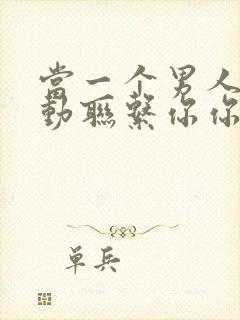 當一个男人
動聯繫你你
單兵